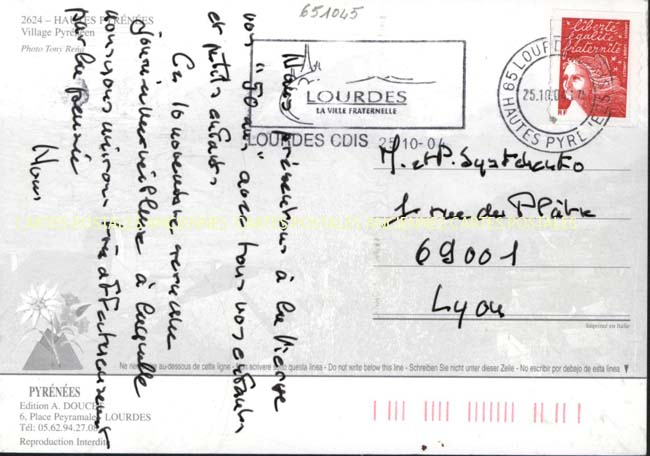 2624 – HAUTES PYRÉNÉES
Village Pyrénéen
Photo Tony René
651045
LOURDES
LA VILLE FRATERNELLE
LOURDES CDIS 25-10-04
65 LOURDES
25.10.04
HAUTES PYRENEES
liberté
égalité
fraternité
RF
Nous présentons à la Vierge
vos "50 ans" avec tous vos enfants
et petits enfants
Ce 10 novembre sera une
journée merveilleuse à laquelle
nous nous unirons très affectueusement
par la pensée
Nous
M. et P.
1 rue du Plâtre
69001
Lyon
CARTES POSTALES ANCIENNES
Imprimé en Italie
Ne rien écrire au-dessous de cette ligne - Non scrivere sotto questa linea - Do not write below this line - Schreiben Sie nicht unter dieser Zeile - No escribir por debajo de esta linea
PYRÉNÉES
Edition A. DOUCET
6, Place Peyramale LOURDES
Tél: 05.62.94.27.08
Reproduction Interdite